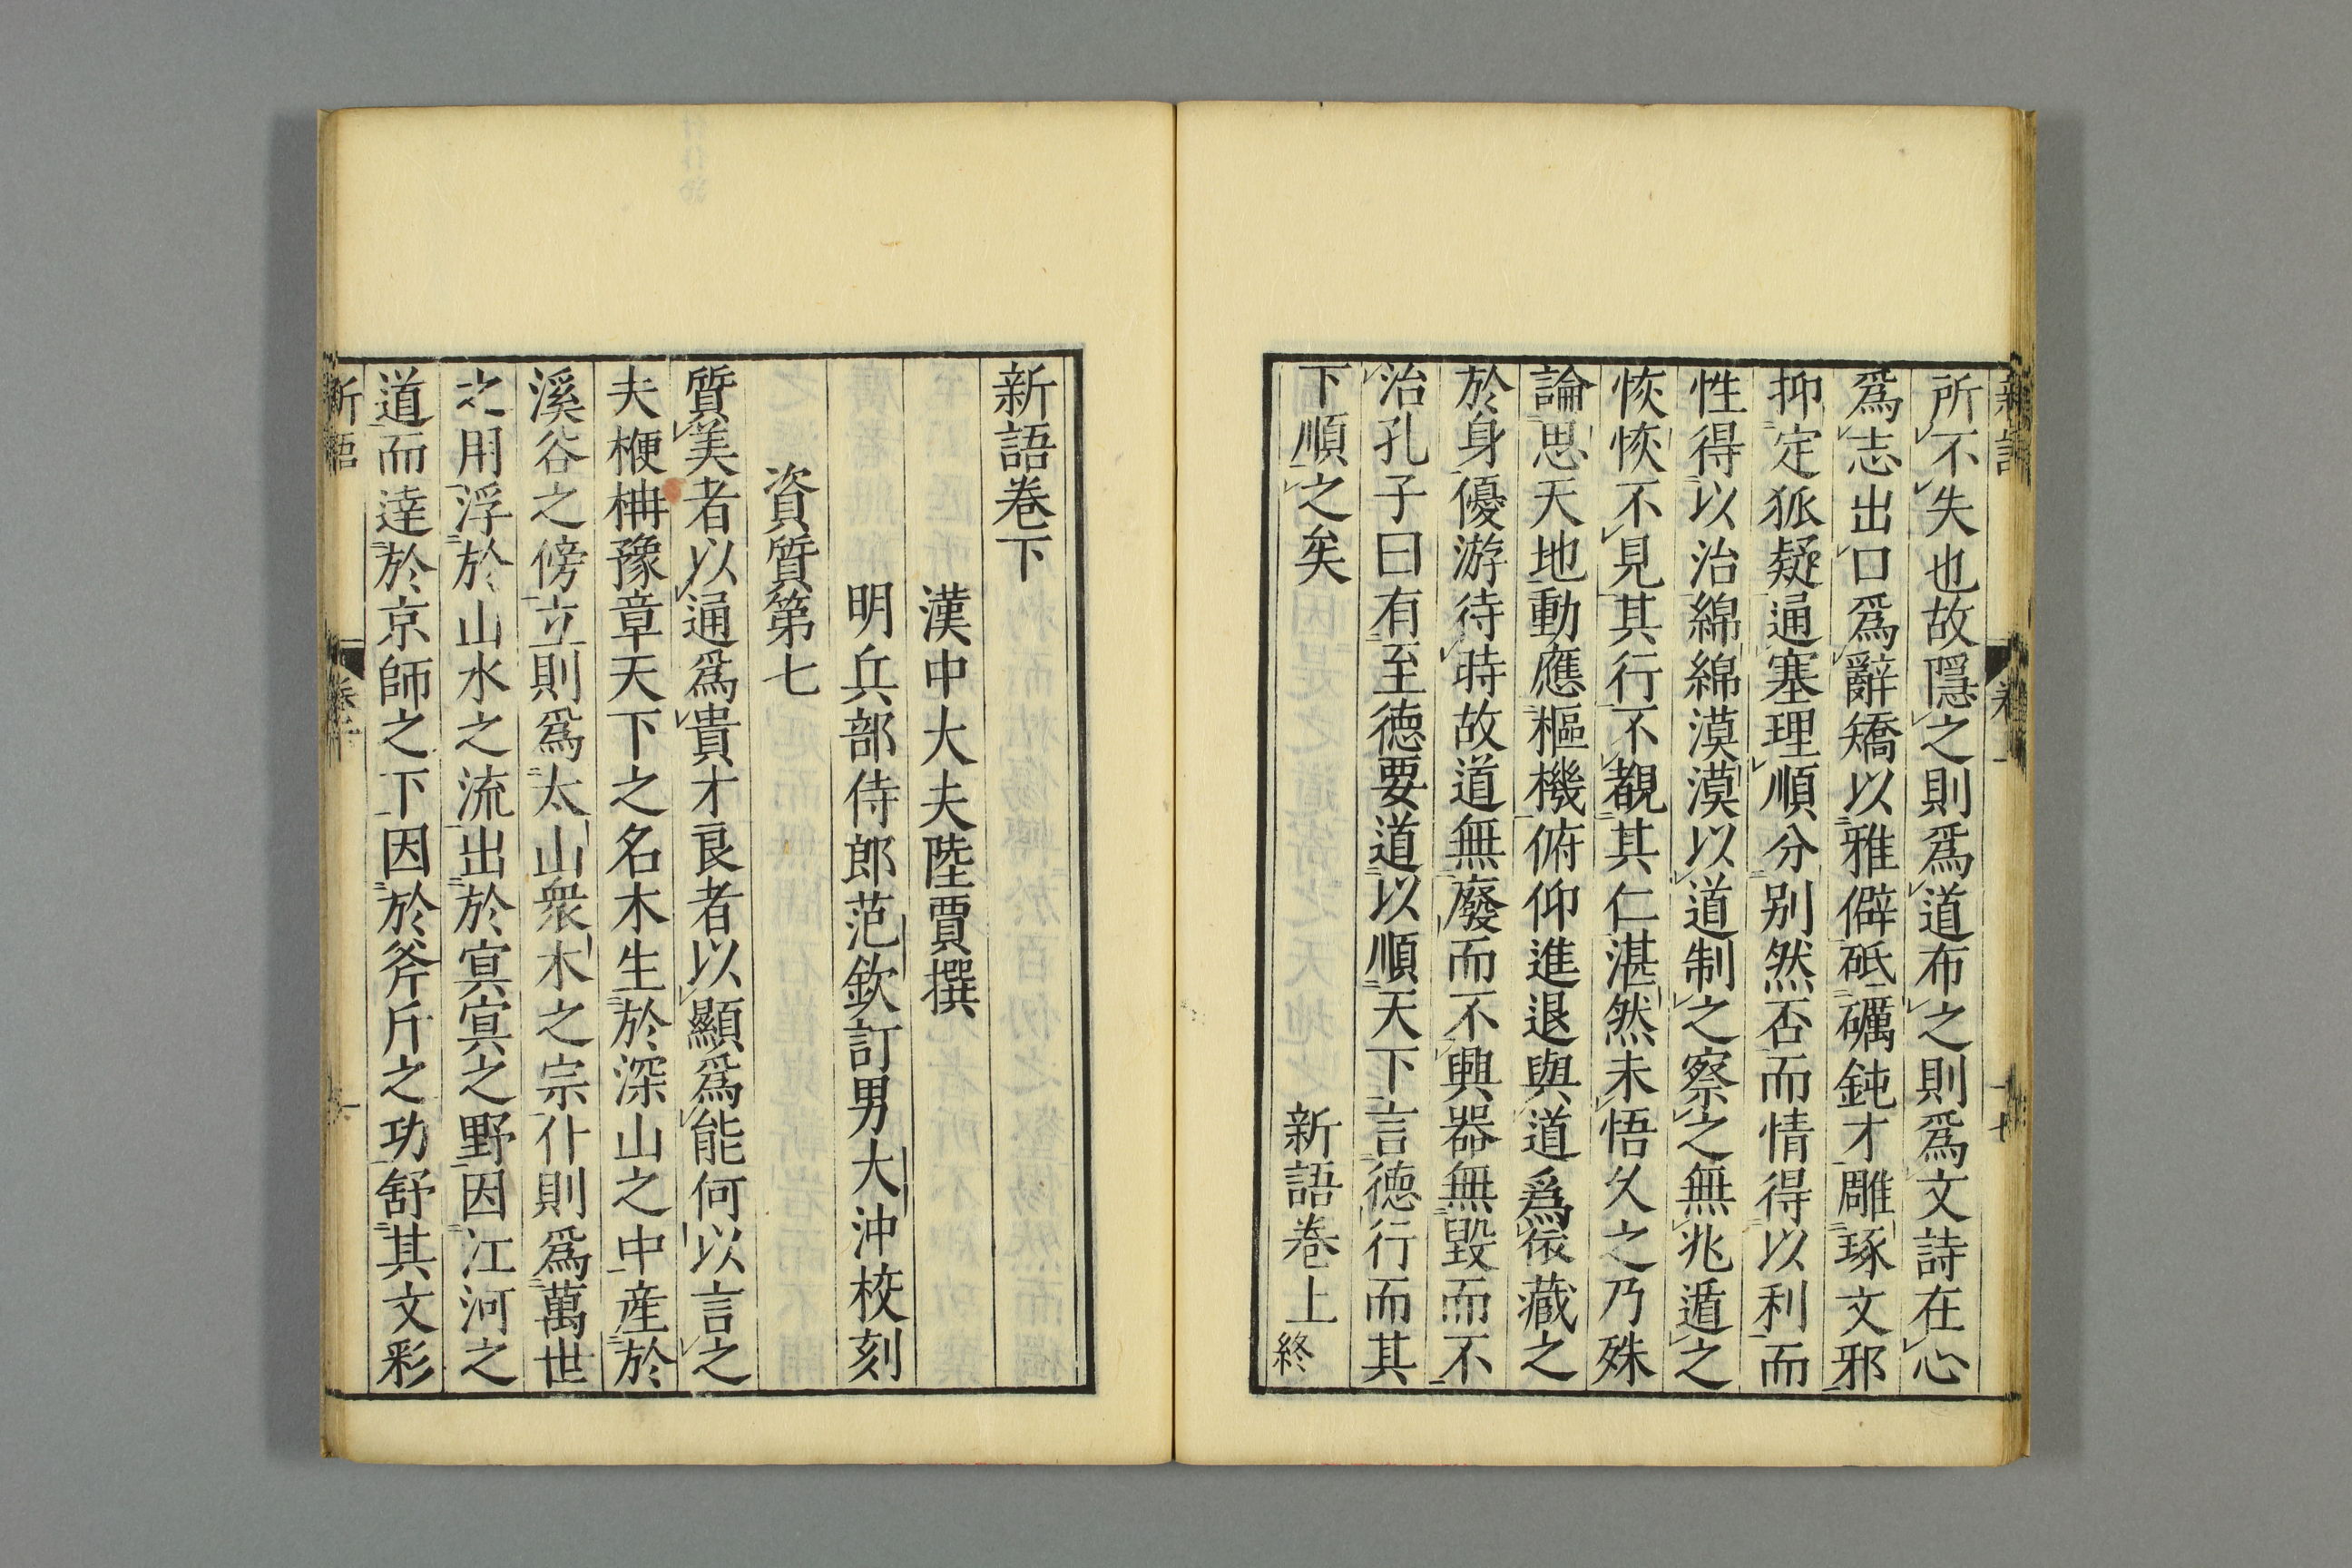 所不失也故隱之則爲道布之則爲文詩在心
爲志出口爲辭矯以雅僻砥礪鈍才雕琢文邪
抑定狐疑通塞理順分别然否而情得以利而
性得以治綿綿漠漠以道制之察之無兆遁之
恢恢不見其行不覩其仁湛然未悟久之乃殊
論思天地動應樞機俯仰進退與道爲依藏之
於身優游待時故道無廢而不興器無毀而不
治孔子曰有至徳要道以順天下言徳行而其
下順之矣
新語卷上終
新語卷下
漢中大夫陸賈撰
明兵部侍郎范欽訂男大沖校刻
資質第七
質美者以通爲貴才良者以顯爲能何以言之
夫楩柟豫章天下之名木生於深山之中産於
溪谷之傍立則爲太山衆木之宗仆則爲萬世
之用浮於山水之流出於㝠㝠之野因江河之
道而達於京師之下因於斧斤之功舒其文彩
新語